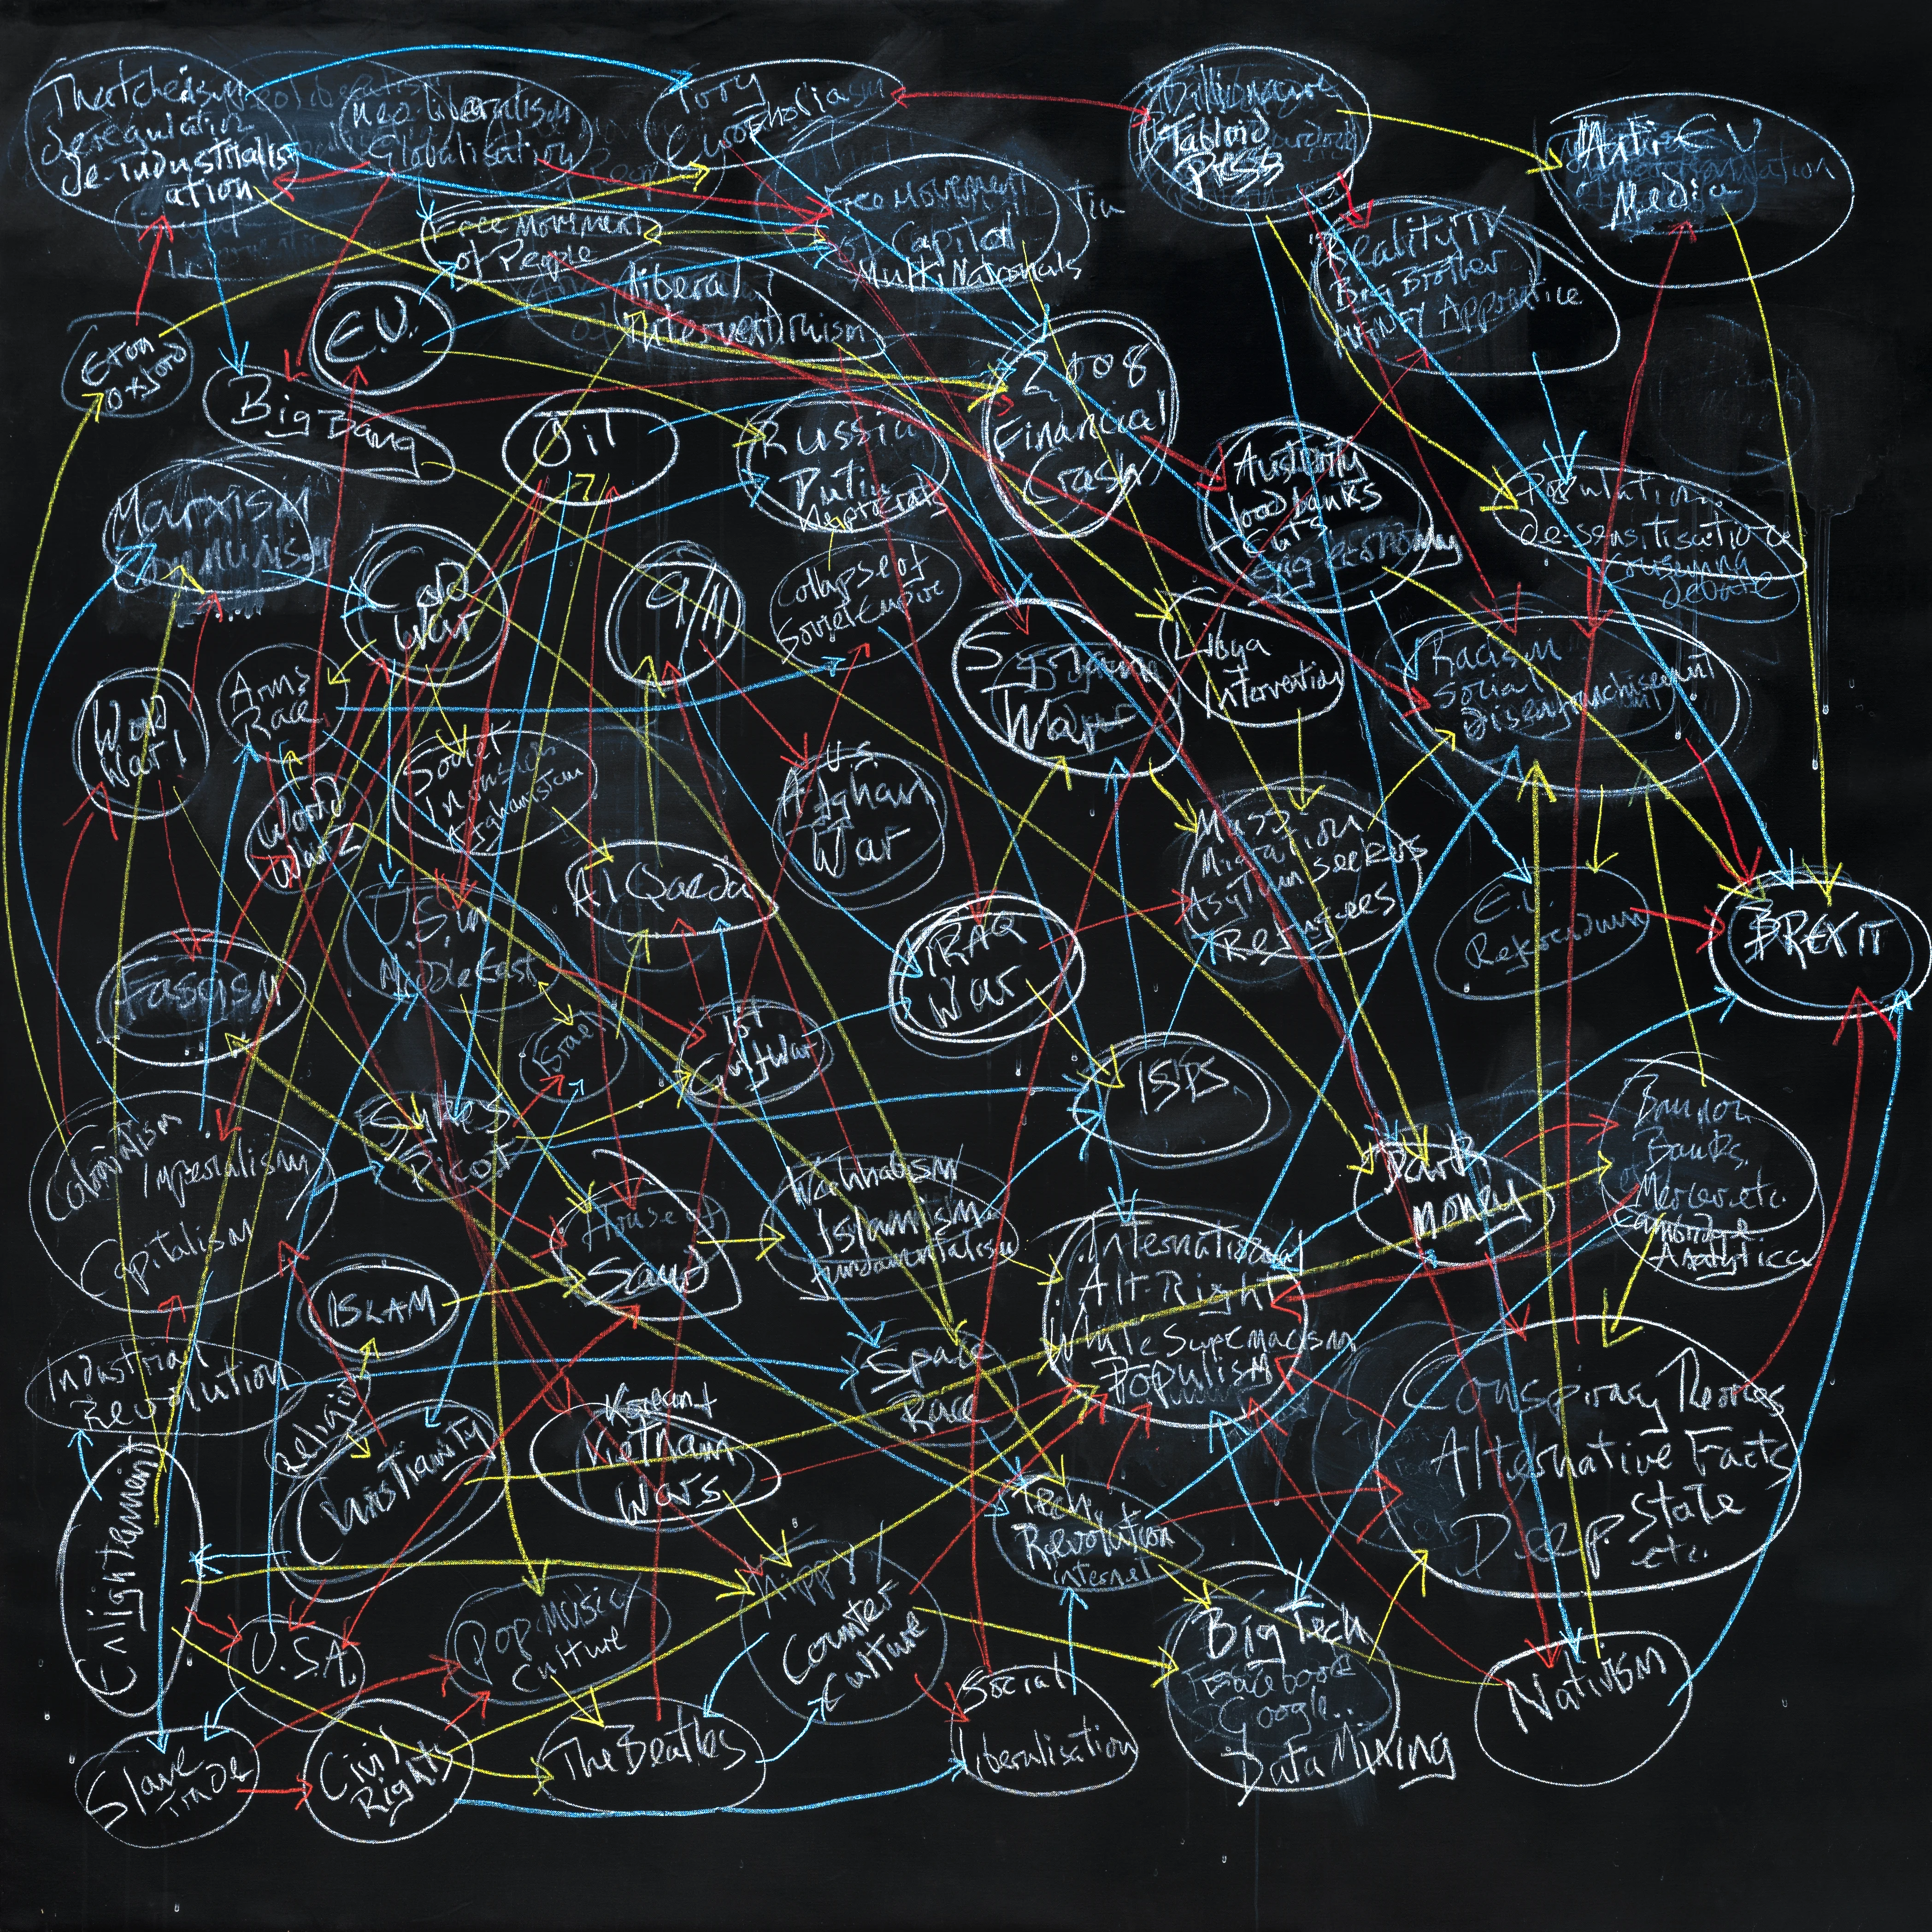 Thatcherism
deregulation
de-industrialis
ation
Neo-liberalism
Globalisation
Tory
Billionaire
Tabloid
PRESS
Anti EU
Media
Free Movement
of People
Free Movement
of Capital
Multi Nationals
Reality TV
Big Brother
Apprentice
liberal
Interventionism
Eton
Oxford
E.U.
Big Bang
Oil
Russia
Putin
Kleptocrats
2008
Financial
Crash
Austerity
foodbanks
Cuts
Gig economy
Population
desensitisation
debate
Marxism
Cold
War
9/11
Collapse of
Soviet Empire
War
Libya
Intervention
Racism
Social
Disenfranchisement
World
War 1
Arms
Race
World
War 2
Soviet
Afghanistan
U.S.
Afghan
War
Al Qaeda
Mass
Migration
Asylum seekers
Refugees
E.U.
Referendum
BREXIT
Fascism
U.S. in
Middle East
Israel
1st
Gulf War
IRAQ
War
ISIS
Colonialism
Imperialism
Capitalism
Sykes
Picot
House of
Saud
Wahhabism
Islamism
fundamentalism
International
Alt-Right
White Supremacism
Populism
Dark
money
Bannon
Banks
Mercer etc.
Cambridge
Analytica
ISLAM
Industrial
Revolution
Religion
Christianity
Space
Race
Korean +
Vietnam
Wars
Conspiracy Theories
Alternative Facts
Deep State
etc.
Enlightenment
Tech
Revolution
internet
U.S.A.
Pop Music/
Culture
Hippy/
Counter
Culture
Big Tech
Facebook
Google...
Data Mining
Nativism
Slave
Trade
Civil
Rights
The Beatles
Social
liberalisation